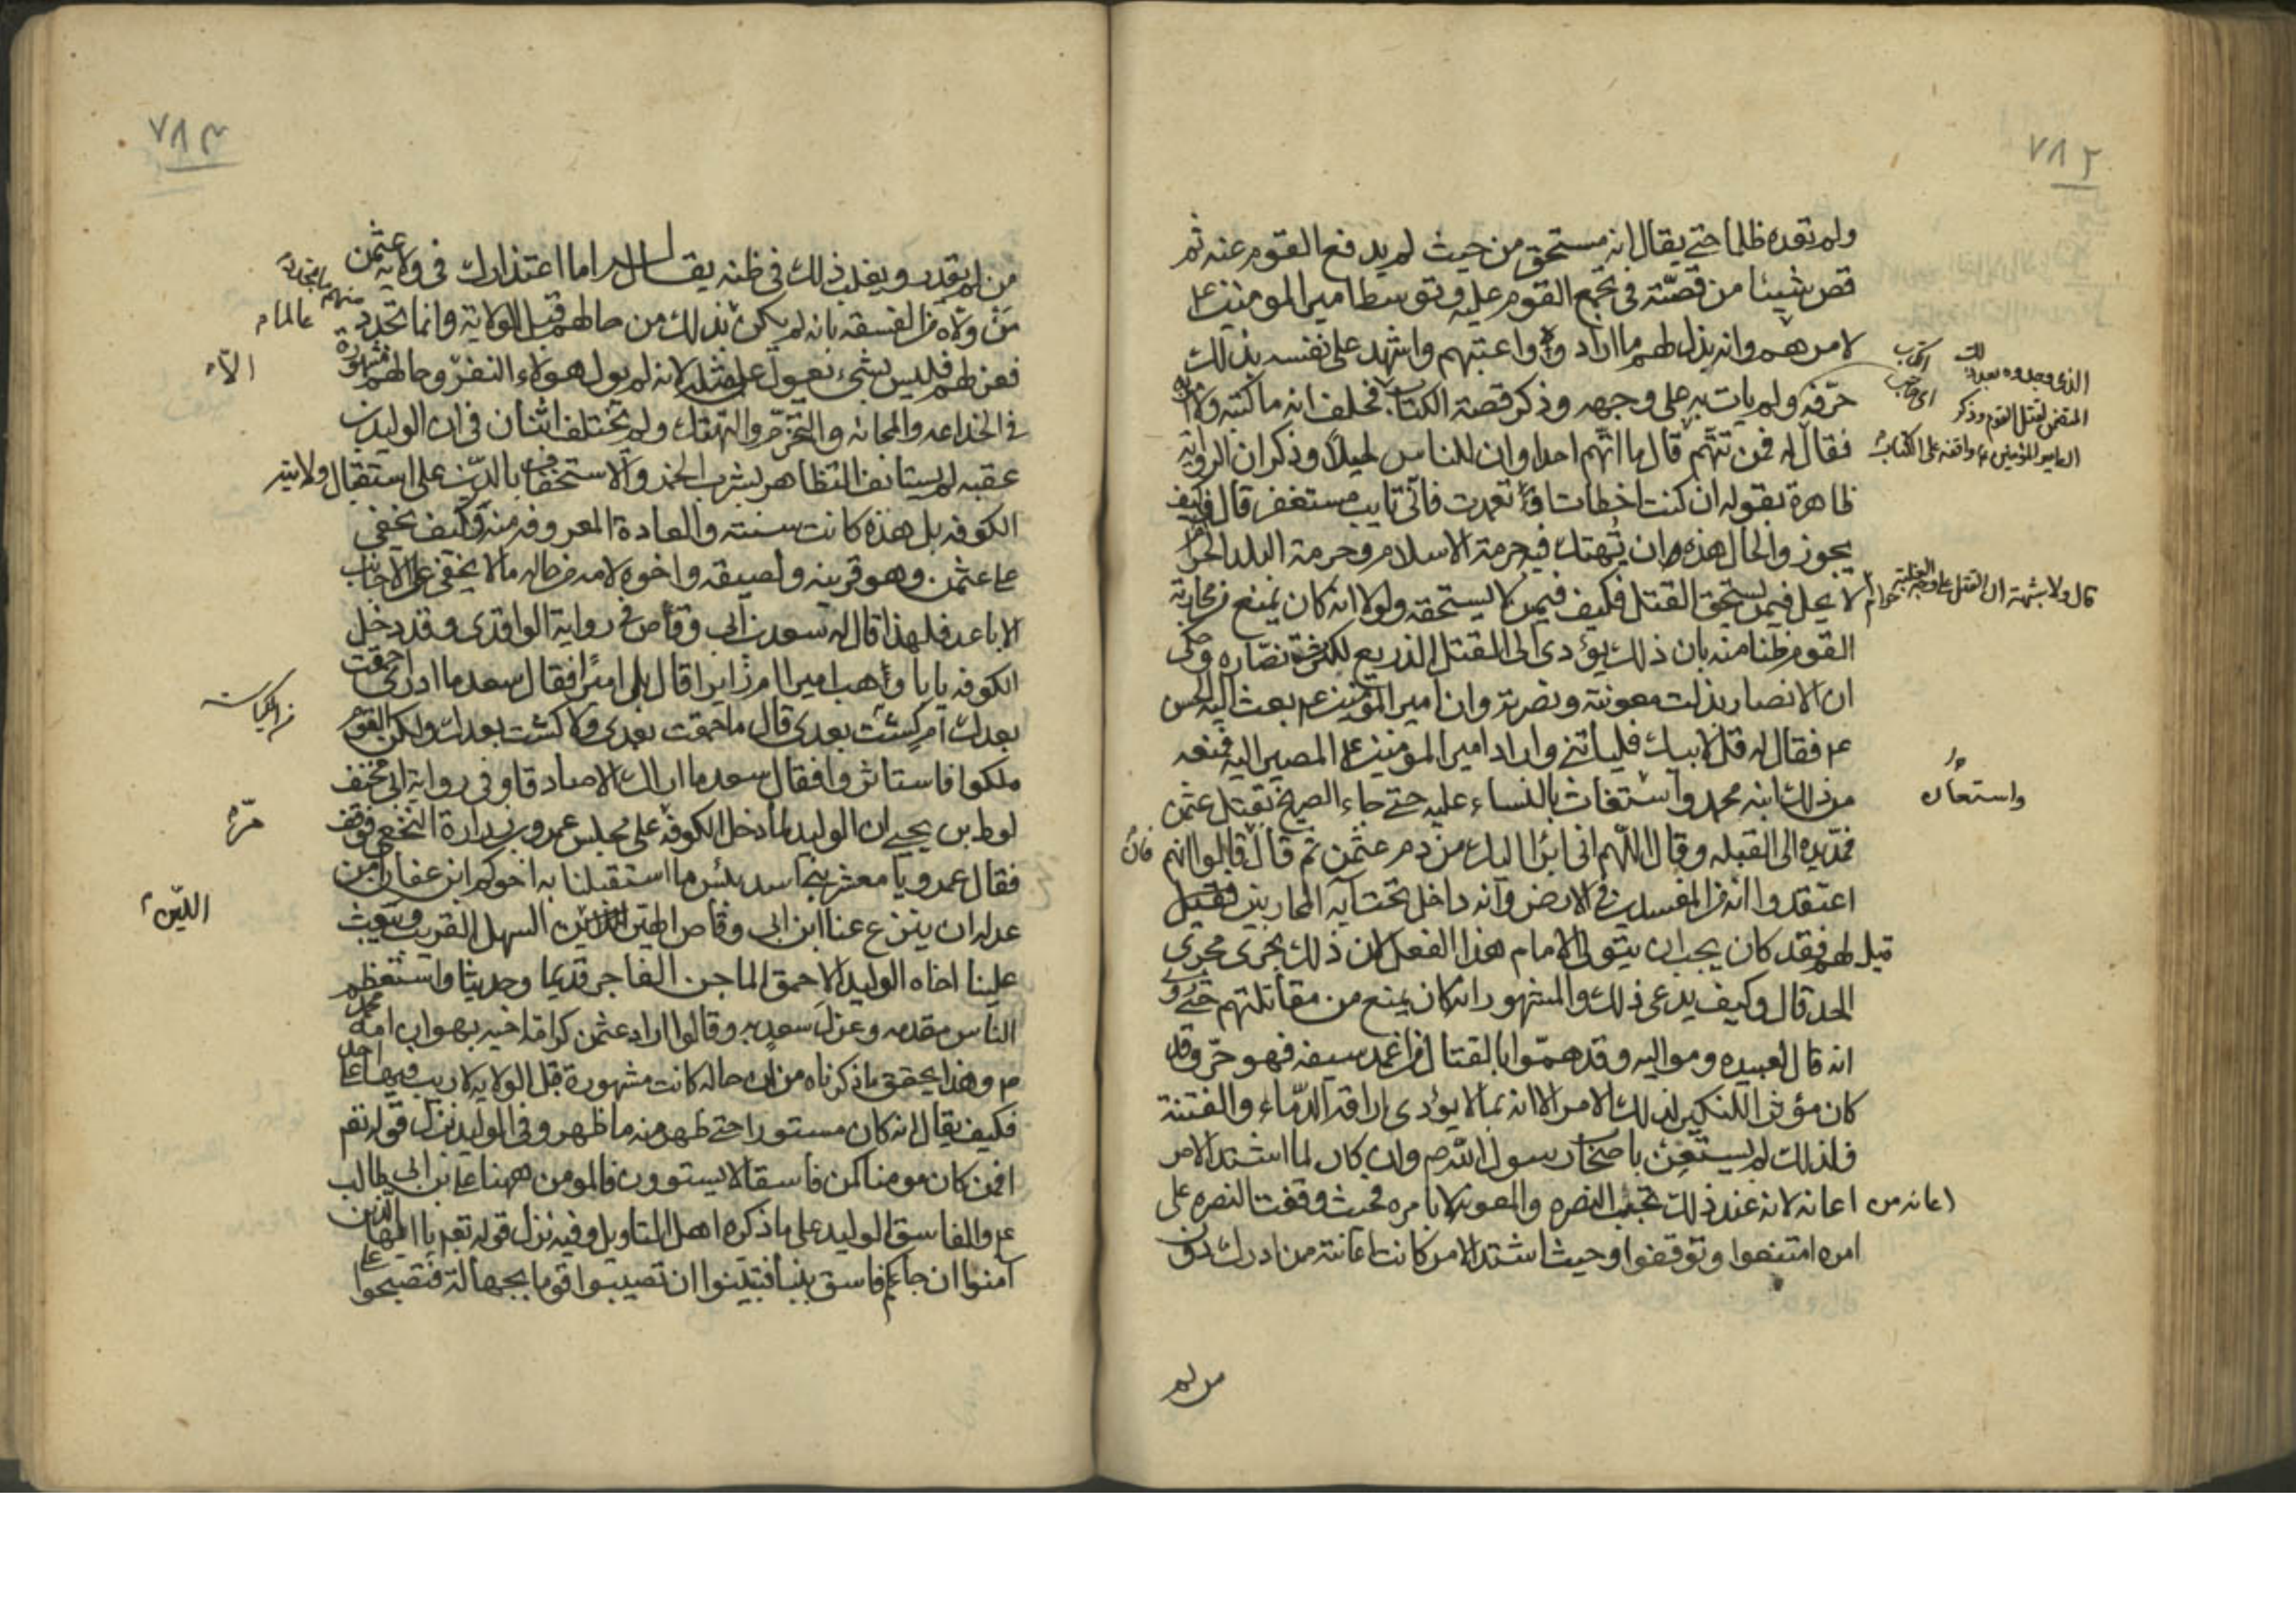 ٧٨٢
ولم تعده ظلما حتى يقال انه مستحق من حيث لم يدفع القوم عنه ثم
قص شيئا من قصته في تجمع القوم عليه وتوسط امير المومنين ع
لامرهم وانه بذل لهم ما اراد واعتبهم واشهد على نفسه بذلك
حرفه ولم يات به على وجهه وذكر قصة الكتاب فحلف انه ما كتبه ولا امر به
فقال له فمن تتهم قال ما اتهم احدا وان للناس لحيلا وذكر ان الرواية
ظاهرة بقوله ان كنت اخطات او تعمدت فاني تايب مستغفر قال فكيف
يجوز والحال هذه ان تهتك فيه حرمة الاسلام وحرمة البلد الحرام
لا يحل فيمن يستحق القتل فكيف فيمن لا يستحقه ولولا انه كان يمنع من محاربة
القوم ظنا منه بان ذلك يؤدى الى القتل الذريع لكثرت نصاره وحكى
ان الانصار بذلت معونته ونصرته وان امير المؤمنين ع بعث اليه الحسن
ع فقال له قل لابيك فلياتني واراد امير المومنين ع المصير اليه فمنعه
من ذلك ابنه محمد واستغاث بالنساء عليه حتى جاء الصريخ بقتل عثمن
فمد يده الى القبله وقال اللهم اني ابرا اليك من دم عثمن ثم قال قالوا انهم
اعتقدوا انه من المفسدين في الارض وانه داخل تحت آيه المحاربين فقيل
قيل لهم فقد كان يجب ان يتولى الامام هذا الفعل لان ذلك يجرى مجرى
الحد قال وكيف يدعى ذلك والمشهور انه كان يمنع من مقاتلتهم حتى روى
انه قال لعبيده ومواليه وقد هموا بالقتال من اغمد سيفه فهو حر وقد
كان مؤثر النكير لذلك الامر الا انه بما لا يؤدى الى اراقه الدماء والفتنة
فلذلك لم يستعن باصحاب رسول الله ص وان كان لما اشتد الامر
اعانه من اعانه لانه عند ذلك تجب النصره والمعونه لا بامره فحيث وقفت النصره على
امره امتنعوا وتوقفوا وحيث اشتد الامر كانت اعانته ممن ادرك دون
من لم
الذى وجدوه بعد ذلك
المتضمن لقتل القوم وذكر
ان امير المؤمنين ع واقفه على الكتاب
قال ولا شبهة ان القتل على وجه الغيلة حرام
واستعان
فان
٧٨٣
من لم يقدر ويغلب ذلك في ظنه يقال له اما اعتذارك في ولاية عثمن
من ولاه من الفسقه بانه لم يكن بذلك من حالهم قبل الولاية وانما تجدد
فعزلهم فليس بشيء يعول على مثله لانه لم يول هولاء النفر وحالهم مشهورة
في الخلاعه والمجانه والتجرم والتهتك ولم يختلف اثنان في ان الوليد بن
عقبه لم يستانف التظاهر بشرب الخمر والاستخفاف بالدين على استقبال ولايته
الكوفه بل هذه كانت سنته والعادة المعروفه منه وكيف يخفى
على عثمن وهو قرينه ولصيقه واخوه لامه من حاله ما لا يخفى على الاجانب
الاباعد فلهذا قال له سعد بن ابي وقاص في رواية الواقدى وقد دخل
الكوفه يا با وهب اميرا ام زايرا قال بلى اميرا فقال سعد ما ادرى احمقت
بعدك ام كست بعدى قال ما حمقت بعدى ولا كست بعدك ولكن القوم
ملكوا فاستاثروا فقال سعد ما اراك الا صادقا وفي رواية ابى مخنف
لوط بن يحيى ان الوليد لما دخل الكوفه على مجلس عمرو بن زرارة النخعى فوقف
فقال عمرو يا معشر بنى اسد بئس ما استقبلنا به اخوكم ابن عفان امن
عدله ان ينزع عنا ابن ابى وقاص الهين اللين السهل القريب ويبعث
علينا اخاه الوليد الاحمق الماجن الفاجر قديما وحديثا واستعظم
الناس مقدمه وعزل سعد به وقالوا اراد عثمن كرامة اخيه بهوان امة محمد
ص وهذا يحقق ما ذكرناه من ان حاله كانت مشهورة قبل الولايه لا ريب فيها على احد
فكيف يقال انه كان مستورا حتى ظهر منه ما ظهر وفى الوليد نزل قوله تعم
افمن كان مومنا كمن فاسقا لا يستوون فالمومن ههنا على بن ابي طالب
ع والفاسق الوليد على ما ذكره اهل التاويل وفيه نزل قوله تعم يا ايها الذين
آمنوا ان جاءكم فاسق بنبا فتبينوا ان تصيبوا قوما بجهالة فتصبحوا على
منهم ما تجدد
الا
مره
اللين